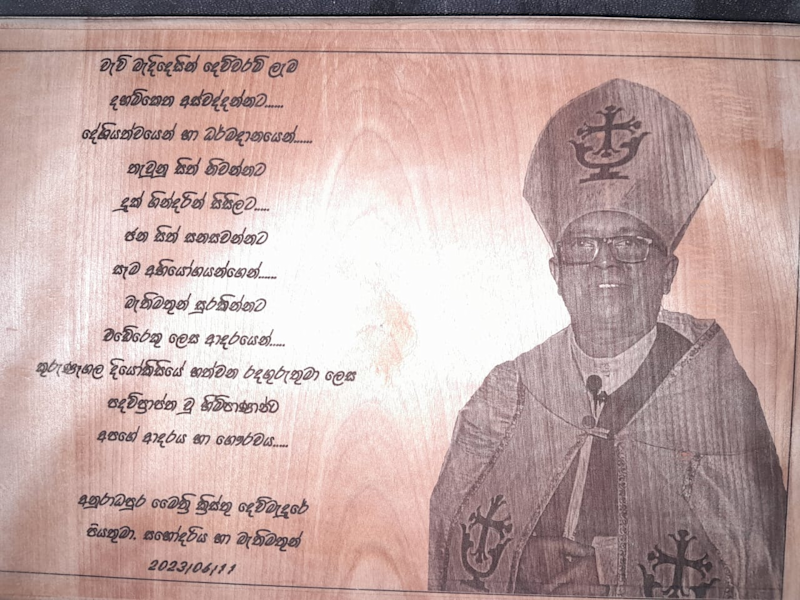 වැව් බැඳිදෙසින් දෙව්වරම් ලැබ
දහම්කෙත අස්වද්දන්නට......
දේශියත්වයෙන් හා ධර්මදානයෙන්......
තැවුනු සිත් නිවන්නට
දුක් ගින්දරින් සිසිලට.....
ජන සිත් සනසවන්නට
සැම අභියෝගයන්ගෙන්......
බැතිමතුන් සුරකින්නට
එඬේරෙකු ලෙස ආදරයෙන්.....
කුරුණෑගල දියෝකිසියේ හත්වන රදගුරුතුමා ලෙස
පදවිප්‍රාප්ත වූ හිමිපාණන්ට
අපගේ ආදරය හා ගෞරවය.....
අනුරාධපුර මෛත්‍රී ක්‍රිස්තු දෙව්මැදුරේ
පියතුමා. සහෝදරිය හා බැතිමතුන්
2023/06/11